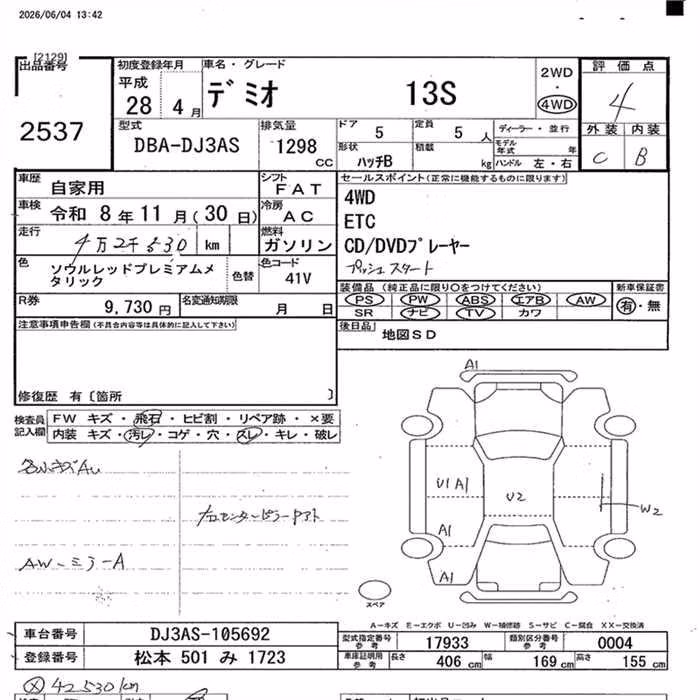 2026/06/04 13:42
[2129]
出品番号
2537
初度登録年月
平成
28 4月
車名・グレード
デミオ 13S
2WD
・
4WD
評価点
4
外装 内装
C B
型式
DBA-DJ3AS
排気量
1298
CC
ドア
5
定員
5 人
形状
ハッチB
積載
kg
ディーラー・並行
モデル年式 年
ハンドル 左・右
車歴
自家用
シフト
FAT
車検
令和 8年11月(30日)
冷房
AC
走行
4万2千530 km
燃料
ガソリン
色
ソウルレッドプレミアムメタリック
色替
色コード
41V
R券
9,730円
名変通知期限
月 日
セールスポイント(正常に機能するものに限ります)
4WD
ETC
CD/DVDプレーヤー
プッシュスタート
装備品 (純正品に限り○をつけてください)
PS PW ABS エアB AW
SR ナビ TV カワ
新車保証書
有・無
後日品
地図SD
注意事項申告欄(不具合内容等は具体的に記入して下さい)
修復歴 有〔箇所 〕
検査員記入欄
FW キズ・飛石・ヒビ割・リペア跡・×要
内装 キズ・汚レ・コゲ・穴・スレ・キレ・破レ
各小キズAU
AW-ミラ-A
A1
U1 A1
U2
W2
A1
A1
スペア
A-キズ E-エクボ U-凹み W-補修跡 S-サビ C-腐食 XX-交換済
車台番号
DJ3AS-105692
登録番号
松本 501 み 1723
型式指定番号
参考
17933
類別区分番号
参考
0004
車庫証明用
参考
長さ 406 cm 幅 169 cm 高さ 155 cm
42530km